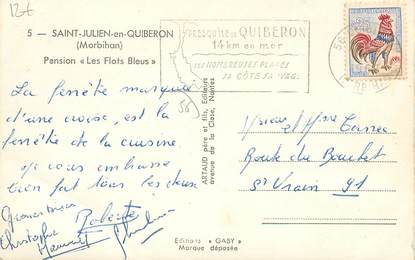 12€
5 — SAINT-JULIEN-en-QUIBERON
(Morbihan)
Pension « Les Flots Bleus »
PRESQU'ILE DE QUIBERON
14 km en mer
SES NOMBREUSES PLAGES
SA CÔTE SAUVAGE
La fenêtre marquée
d'une croix, est la
fenêtre de la cuisine
je vous embrasse
bien fort tous les deux
Roberte
Christophe
56
ARTAUD père et fils, Editeurs
avenue de la Close, Nantes
Monsieur et Mme
Route du Bouchet
St Vrain 91
Editions « GABY »
Marque déposée